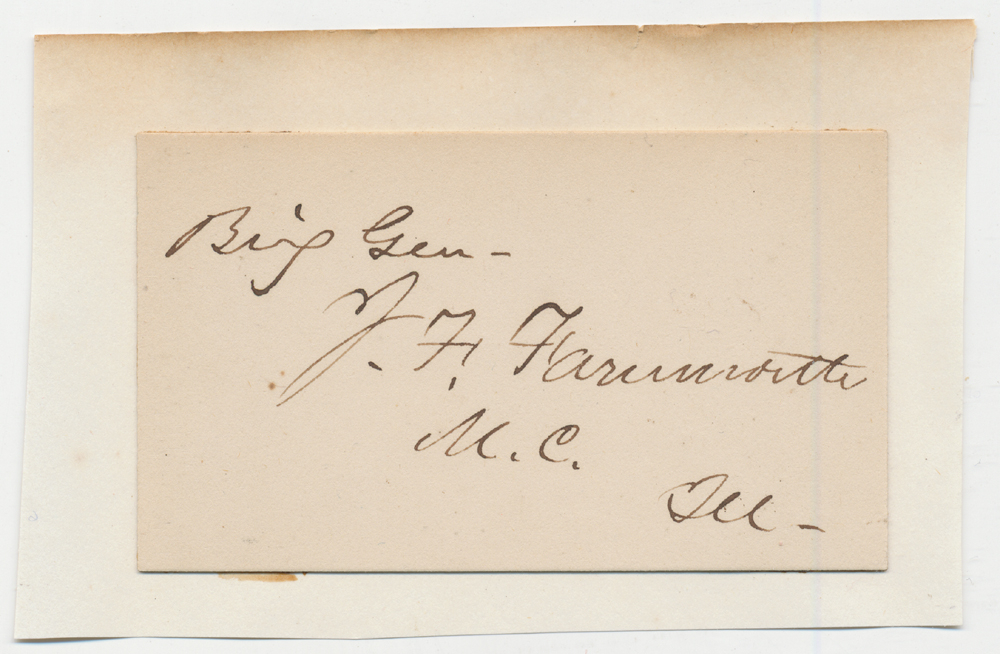 Brig Gen -
J. F. Farnsworth
M. C.
Ill -